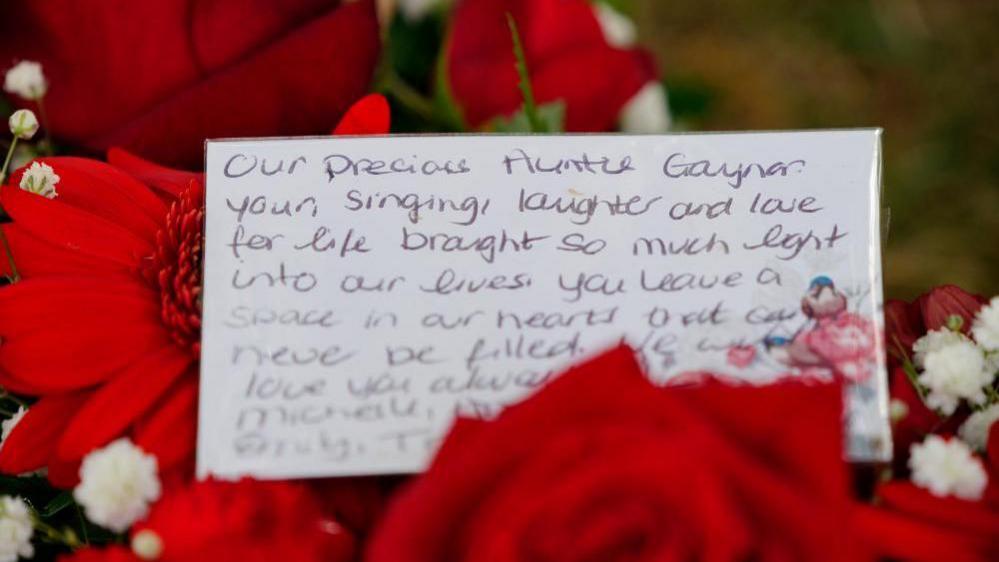 Our precious Auntie Gaynor.
your, singing, laughter and love
for life brought so much light
into our lives. you leave a
space in our hearts that can
never be filled. We will
love you always
Michelle,
Emily,